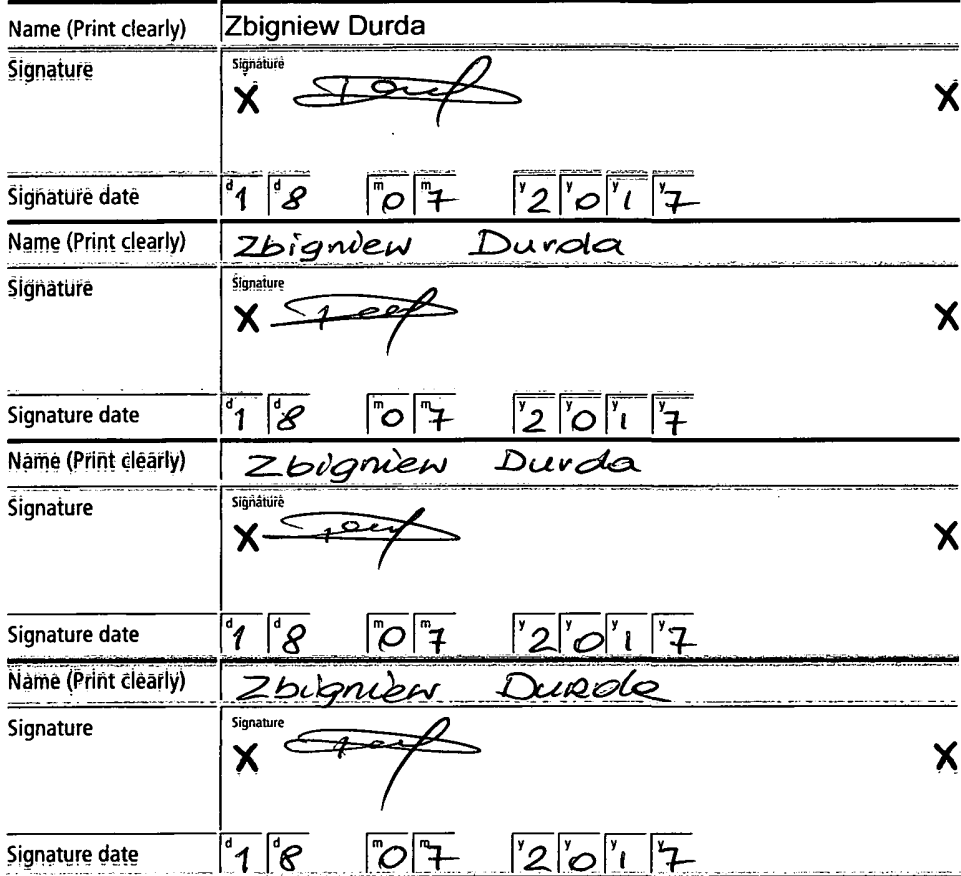 Name (Print clearly) Zbigniew Durda
Signature Signature
X X
Signature date d1 d8 m0 m7 y2 y0 y1 y7
Name (Print clearly) Zbigniew Durda
Signature Signature
X X
Signature date d1 d8 m0 m7 y2 y0 y1 y7
Name (Print clearly) Zbigniew Durda
Signature Signature
X X
Signature date d1 d8 m0 m7 y2 y0 y1 y7
Name (Print clearly) Zbigniew Durda
Signature Signature
X X
Signature date d1 d8 m0 m7 y2 y0 y1 y7